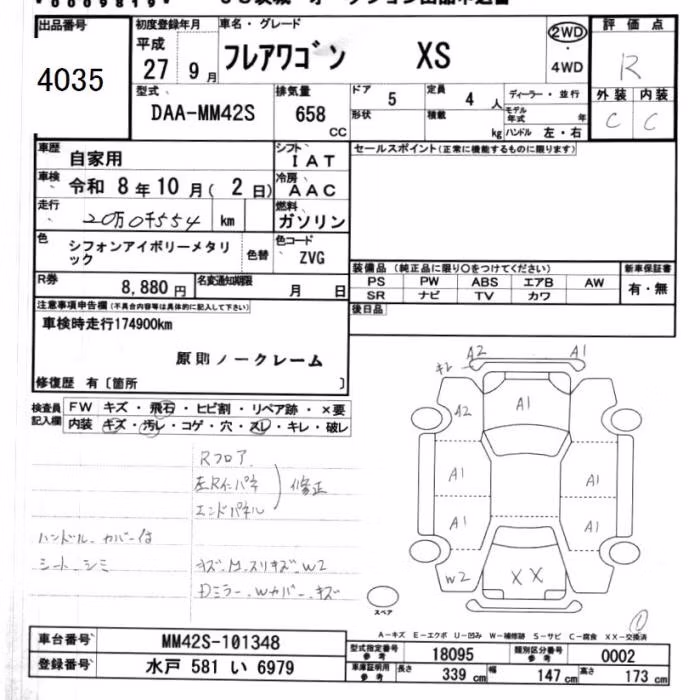 出品番号
4035
初度登録年月
平成
27 9月
車名・グレード
フレアワゴン XS
2WD
・
4WD
評価点
R
外装 内装
C C
型式
DAA-MM42S
排気量
658
CC
ドア
5
定員
4 人
形状
積載
kg
ディーラー・並行
モデル年式 年
ハンドル 左・右
車歴
自家用
シフト
IAT
車検
令和 8年 10月 ( 2日)
冷房
AAC
走行
20万0千554 km
燃料
ガソリン
色
シフォンアイボリーメタリ
ック
色替
色コード
ZVG
R券
8,880円
名変通知期限
月 日
セールスポイント(正常に機能するものに限ります)
装備品 (純正品に限り○をつけてください)
PS PW ABS エアB AW
SR ナビ TV カワ
新車保証書
有・無
後日品
注意事項申告欄(不具合内容等は具体的に記入して下さい)
車検時走行174900km
原則ノークレーム
修復歴 有〔箇所 〕
検査員
記入欄
FW キズ・飛石・ヒビ割・リペア跡・×要
内装 キズ・汚レ・コゲ・穴・スレ・キレ・破レ
Rフロア
エンドパネル
修正
ハンドル カバー付
シート シミ
キズ.M.スリキズ.W2
Dミラー.Wカバー.キズ
A2 A1
キレ
A2
A1
A1 A1
A1 A1
W2
XX
スペア
①
A-キズ E-エクボ U-凹み W-補修跡 S-サビ C-腐食 XX-交換済
車台番号
MM42S-101348
登録番号
水戸 581 い 6979
型式指定番号
参考
18095
類別区分番号
参考
0002
車庫証明用
参考
長さ
339 cm
幅
147 cm
高さ
173 cm